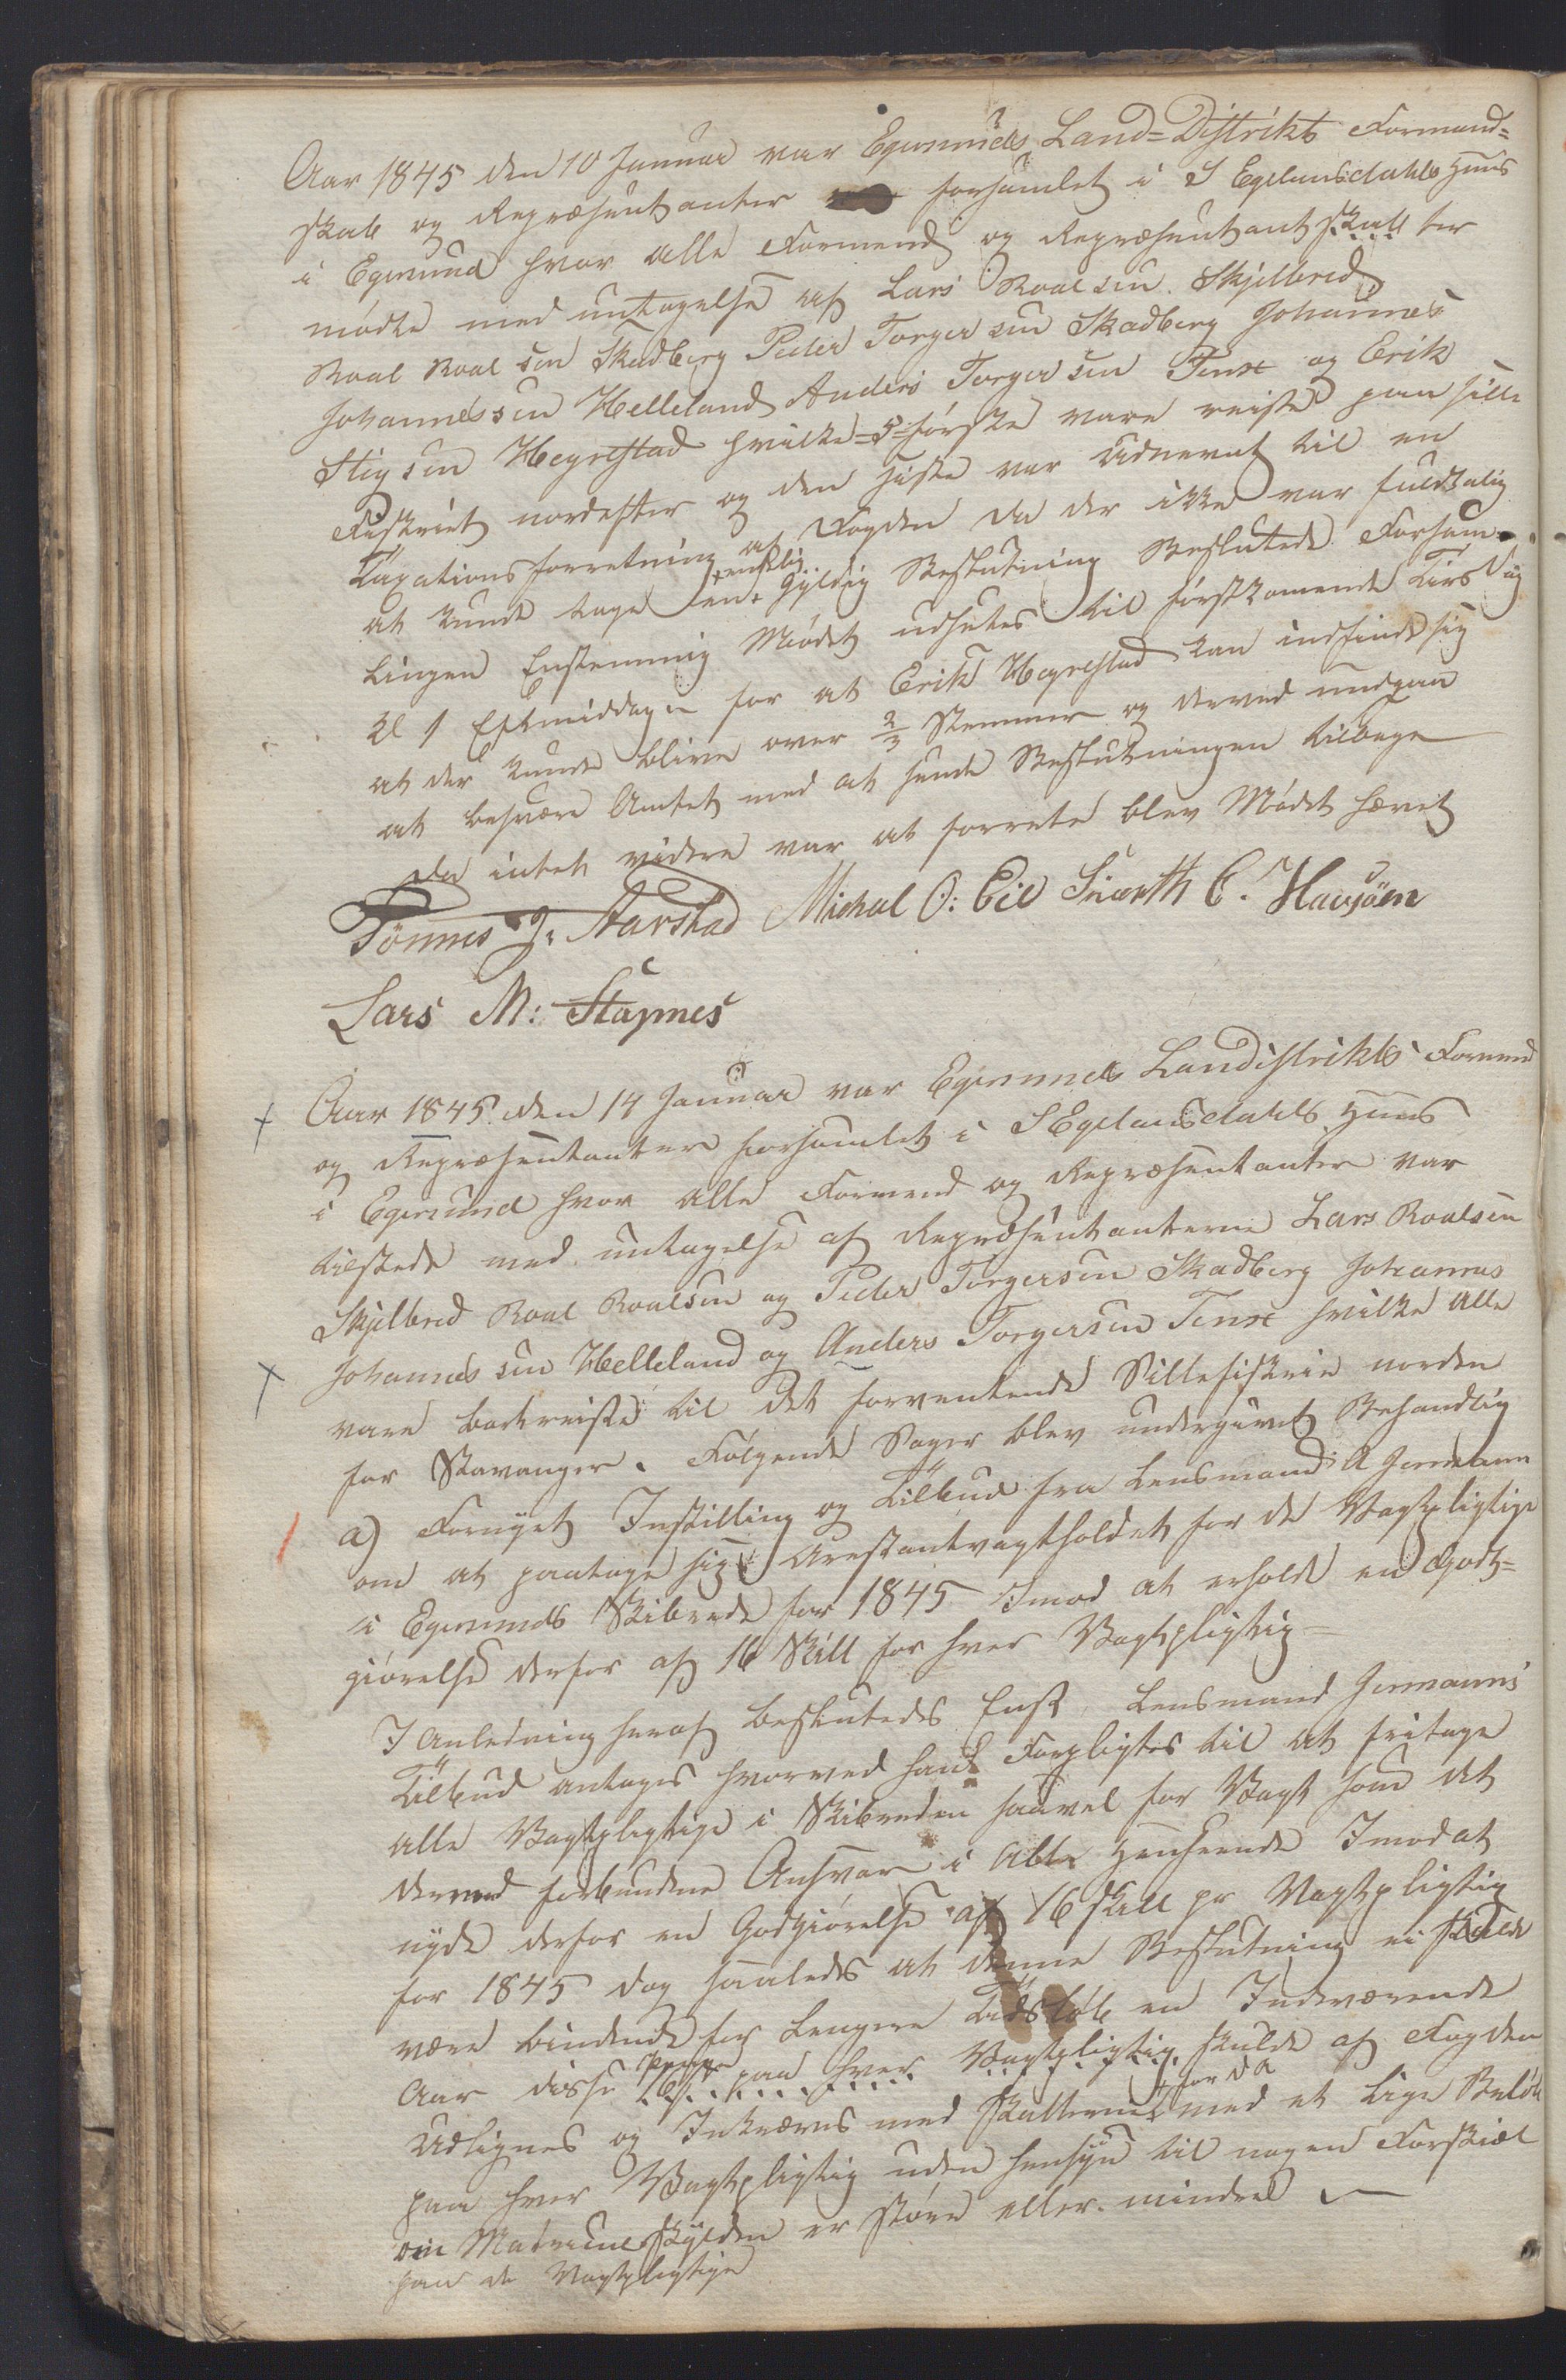 Aar 1845 den 10 Januar var Egersunds Land=Distrikts Formand=
skab og Repræsentanter forsamlet i S Egelandsdahls Huus
i Egersund hvor alle Formend og Repræsentantskab ter
mødte med untagelse af Lars Roalsen Skjelbred
Roal Roalsen Skadberg Peder Torgersen Skadberg Johannes
Johannessen Helleland Anders Torgersen Tenxe og Erik
Stigsen Hegrestad hvilke =5= første vare reiste paa sille
Fiskriet nordefter og den siste var Udnevnt til en
Taxationsforretning af Fogden da der ikke var fuldtalig
at kunde tage en + endelig gyldig Beslutning Beslutede Forsam=
lingen Enstemmig Mødet udsettes til førstkomende Tirsdag
Kl 1 Eftmiddagen for at Erik Hegrestad kan indfinde sig
at der kunde blive over 2/3 Stemmer og derved undgaa
at besvære Amtet med at sende Beslutningen tilbage
Da intet videre var at forrette blev Mødet hævet
Tönnes J. Aarstad Michal O: Eie Sivarth C. Havsöen
Lars M: Stapnes
Aar 1845 den 14 Januar var Egersunds Landistrikts Formend
og Repræsentanter forsamlet i S Egelandsdahls Huus
i Egersund hvor alle Formend og Repræsentanter var
tilstede med untagelse af Repræsentanterne Lars Roalsen
Skjelbred Roal Roalsen og Peder Torgersen Skadberg Johannes
Johannessen Helleland og Anders Torgersen Tenxe hvilke alle
vare bortreiste til det forventende Sillefiskrie norden
for Stavanger. Følgende Sager blev undergivet Behandlig
a) Fornyet Instilling og Tilbud fra Lensmand A Jermann
om at paatage sig Arestantvagtholdet for de Vagtpligtige
i Egersunds Skibrede for 1845 Imod at erholde en Godt=
giørelse derfor af 16 Skill for hver Vagtpligtig
I Anledning heraf besluttedes Enst Lensmand Jermanns
Tilbud antages hvorved hand Forpligtes til at fritage
alle Vagtpligtige i Skibreden saavel for Vagt som det
dermed forbundene Ansvar i alle Henseende Imod at
nyde derfor en Godtgiørelse af 16 Skill pr Vagtpligtig
for 1845 dog saaledes at denne Beslutning ei skulde
være bindende for Lengere Tidsløb en Indeværende
Aar disse Penge 16 s paa hver Vagtpligtig skulde af Fogden
Udlignes og Inkræves med Skatterne + for da med et lige Beløb
paa hver Vagtpligtig uden hensyn til nogen Forskiel
om Matrikulskylden er støre eller mindre
paa de Vagtpligtige